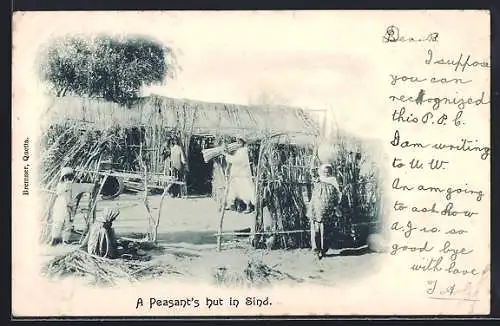 Dear B
I suppose
you can
recckognized
this P.P.C.
I am writing
to W.W.
An am going
to ask how
A.J. is. so
good bye
with love
J.A
Bremner, Quetta.
A Peasant's hut in Sind.